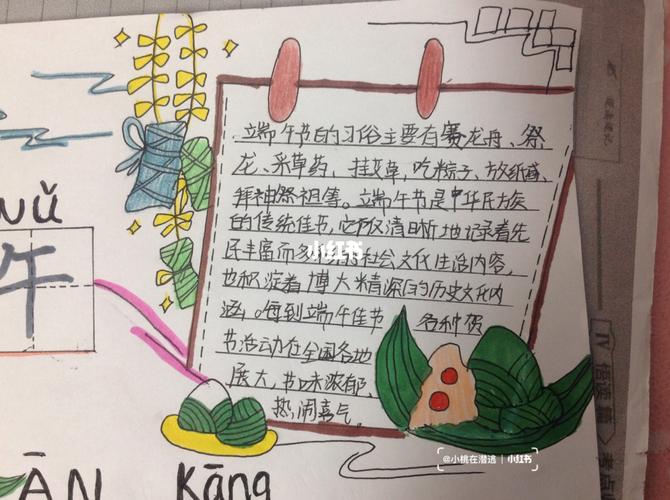 wǔ
午
端午节的习俗主要有赛龙舟、祭
龙、采草药、挂艾草、吃粽子、放纸鸢、
拜神祭祖等。端午节是中华民族
的传统佳节,它不仅清晰地记录着先
民丰富而多 社会文化生活内容,
也积淀着博大精深的历史文化内
涵。每到端午佳节 各种贺
节活动在全国各地
展大,节味浓郁、
热闹喜气。
小红书
ĀN Kāng
@小桃在潜逃 小红书